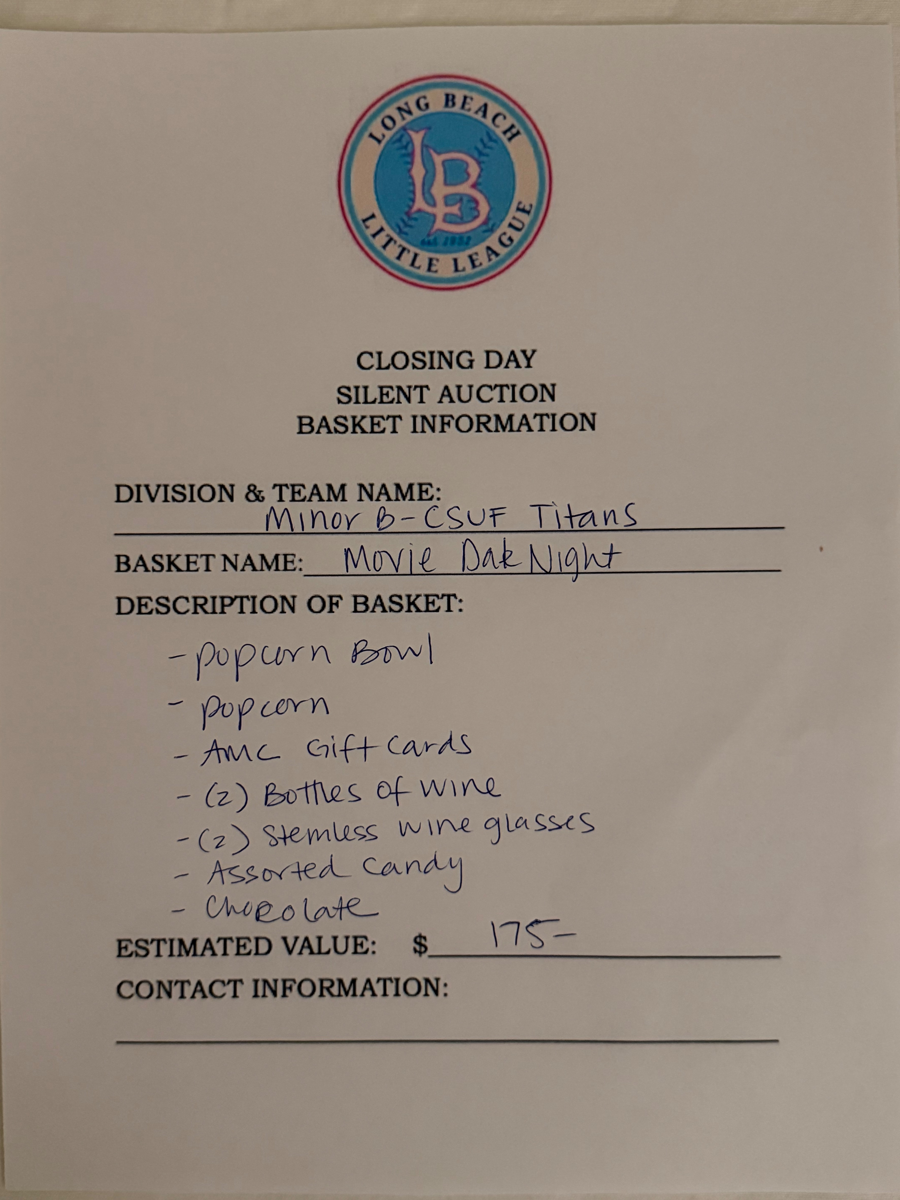 LONG BEACH
LB
est. 1952
LITTLE LEAGUE
CLOSING DAY
SILENT AUCTION
BASKET INFORMATION
DIVISION & TEAM NAME:
Minor B-CSUF Titans
BASKET NAME: Movie Date Night
DESCRIPTION OF BASKET:
- popcorn Bowl
- popcorn
- AMC Gift Cards
- (2) Bottles of wine
- (2) Stemless wine glasses
- Assorted Candy
- Chocolate
ESTIMATED VALUE: $ 175-
CONTACT INFORMATION: